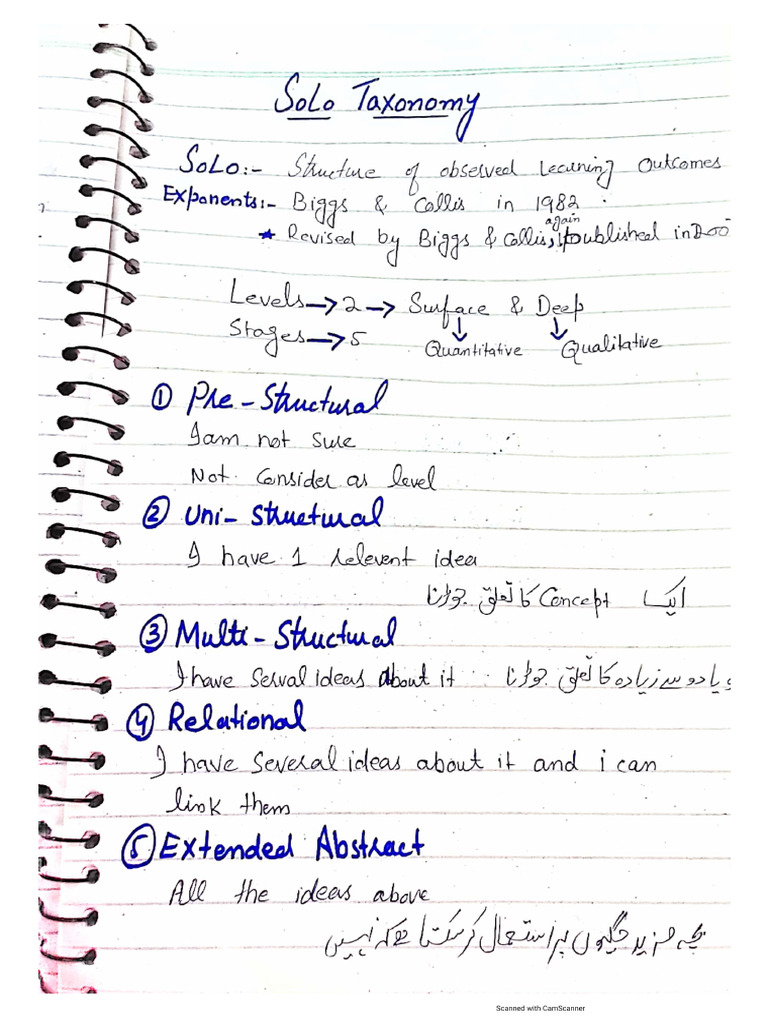 SoLo Taxonomy
SoLo:- Structure of observed Learning Outcomes
Exponents:- Biggs & Collis in 1982.
again
* Revised by Biggs & Collis, published in
Levels → 2 → Surface & Deep
Stages → 5 Quantitative Qualitative
① Pre-Structural
I am not sure
Not Consider as level
② Uni-Structural
I have 1 relevent idea
ایک Concept کا تعلق جوڑنا
③ Multi-Structural
I have Serval ideas About it یا دو سے زیادہ کا تعلق جوڑنا
④ Relational
I have Several ideas about it and i can
link them
⑤ Extended Abstract
All the ideas above
بچہ مزید جگہوں پر استعمال کر سکتا ہے کہ نہیں
Scanned with CamScanner